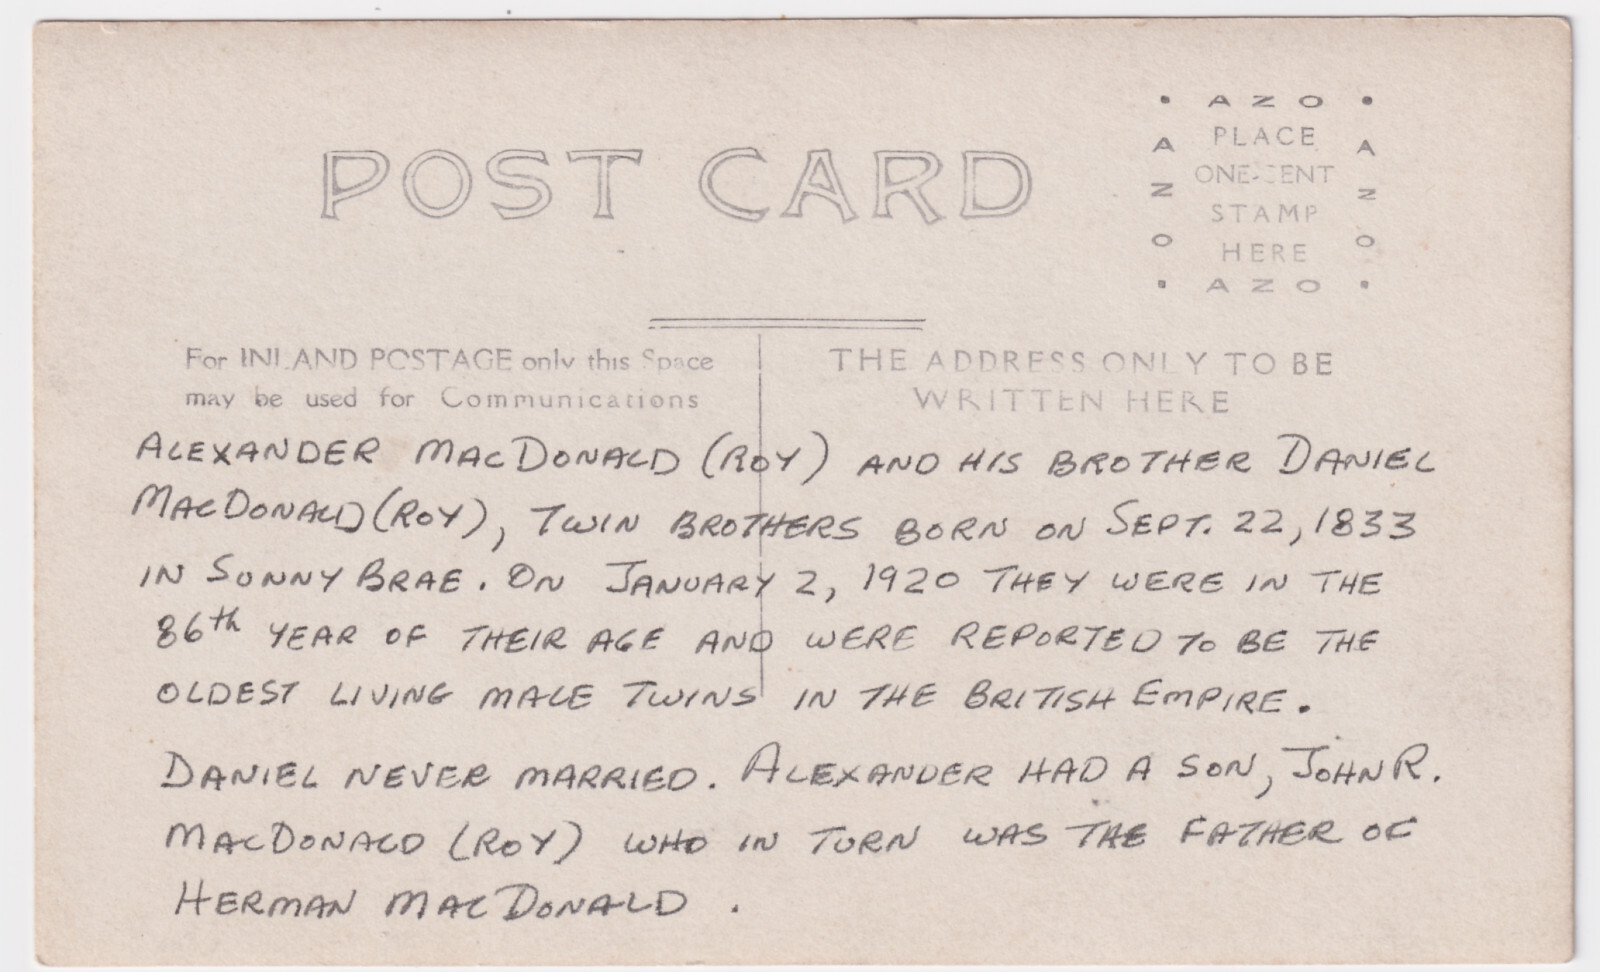 POST CARD
AZO
PLACE
ONE-CENT
STAMP
HERE
AZO
AZO
AZO
For INLAND POSTAGE only this Space
may be used for Communications
THE ADDRESS ONLY TO BE
WRITTEN HERE
ALEXANDER MACDONALD (ROY) AND HIS BROTHER DANIEL
MACDONALD (ROY), TWIN BROTHERS BORN ON SEPT. 22, 1833
IN SUNNY BRAE. ON JANUARY 2, 1920 THEY WERE IN THE
86th YEAR OF THEIR AGE AND WERE REPORTED TO BE THE
OLDEST LIVING MALE TWINS IN THE BRITISH EMPIRE.
DANIEL NEVER MARRIED. ALEXANDER HAD A SON, JOHN R.
MACDONALD (ROY) WHO IN TURN WAS THE FATHER OF
HERMAN MACDONALD.